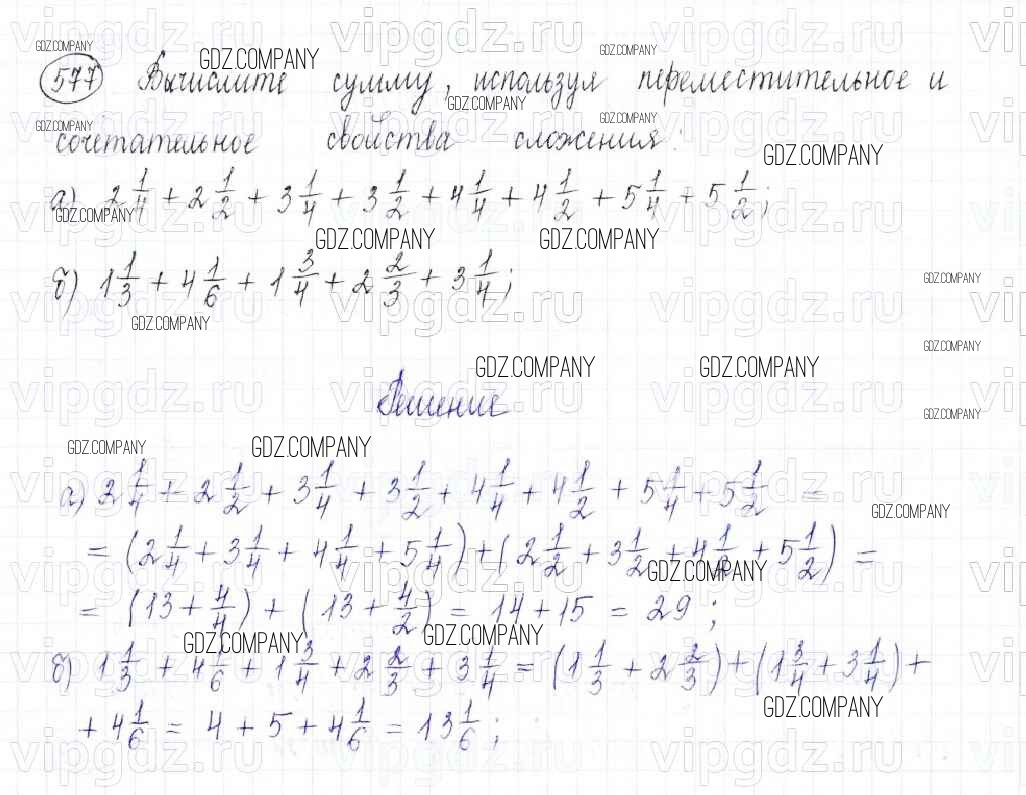 vipgdz.ru
GDZ.COMPANY
577 Вычислите сумму, используя переместительное и
сочетательное свойства сложения:
а) 2 1/4 + 2 1/2 + 3 1/4 + 3 1/2 + 4 1/4 + 4 1/2 + 5 1/4 + 5 1/2;
б) 1 1/3 + 4 1/6 + 1 3/4 + 2 2/3 + 3 1/4;
Решение
а) 2 1/4 + 2 1/2 + 3 1/4 + 3 1/2 + 4 1/4 + 4 1/2 + 5 1/4 + 5 1/2 =
= (2 1/4 + 3 1/4 + 4 1/4 + 5 1/4) + (2 1/2 + 3 1/2 + 4 1/2 + 5 1/2) =
= (13 + 4/4) + (13 + 4/2) = 14 + 15 = 29;
б) 1 1/3 + 4 1/6 + 1 3/4 + 2 2/3 + 3 1/4 = (1 1/3 + 2 2/3) + (1 3/4 + 3 1/4) +
+ 4 1/6 = 4 + 5 + 4 1/6 = 13 1/6;